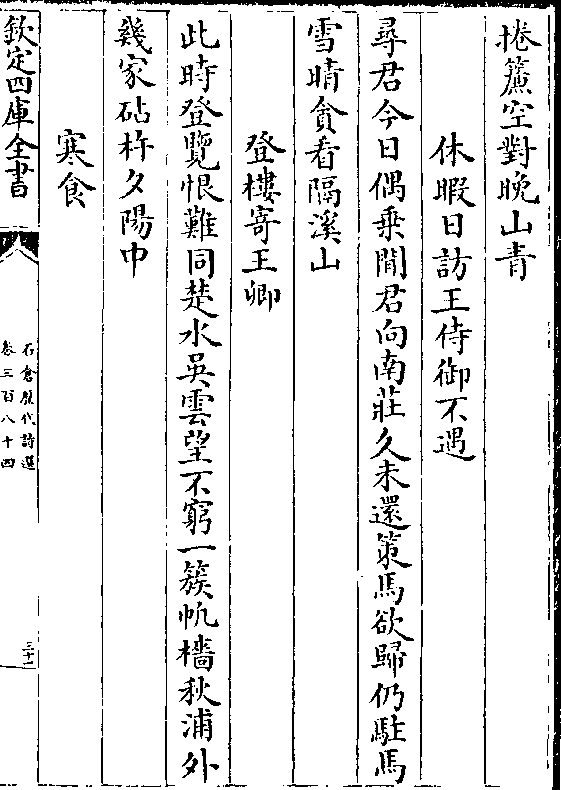 捲簾空對晚山青
休暇日訪王侍御不遇
尋君今日偶乗閒君向南莊久未還策馬欲歸仍駐馬
雪晴貪看隔溪山
登樓寄王卿
此時登覽恨難同楚水吳雲望不窮一簇帆檣秋浦外
幾家砧杵夕陽中
寒食
欽定四庫全書
石倉歴代詩選
卷三百八十四
三十二